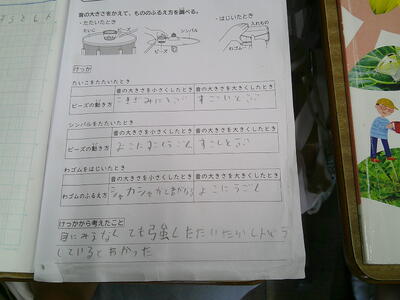 音の大きさをかえて、もののふるえ方を調べる。
・たたいたとき
・はじいたとき
たいこ
シンバル
入れもの
ビーズ
わゴム
けっか
たいこをたたいたとき
音の大きさを小さくしたとき 音の大きさを大きくしたとき
ビーズの動き方 こきざみにとぶ すごいとぶ
シンバルをたたいたとき
音の大きさを小さくしたとき 音の大きさを大きくしたとき
ビーズの動き方 よこにすこしうごく すこしとぶ
わゴムをはじいたとき
音の大きさを小さくしたとき 音の大きさを大きくしたとき
わゴムのふるえ方 よこにうごく
けっかから考えたこと
目にみえなくても弱強くたたいたらしんどう
しているとわかった